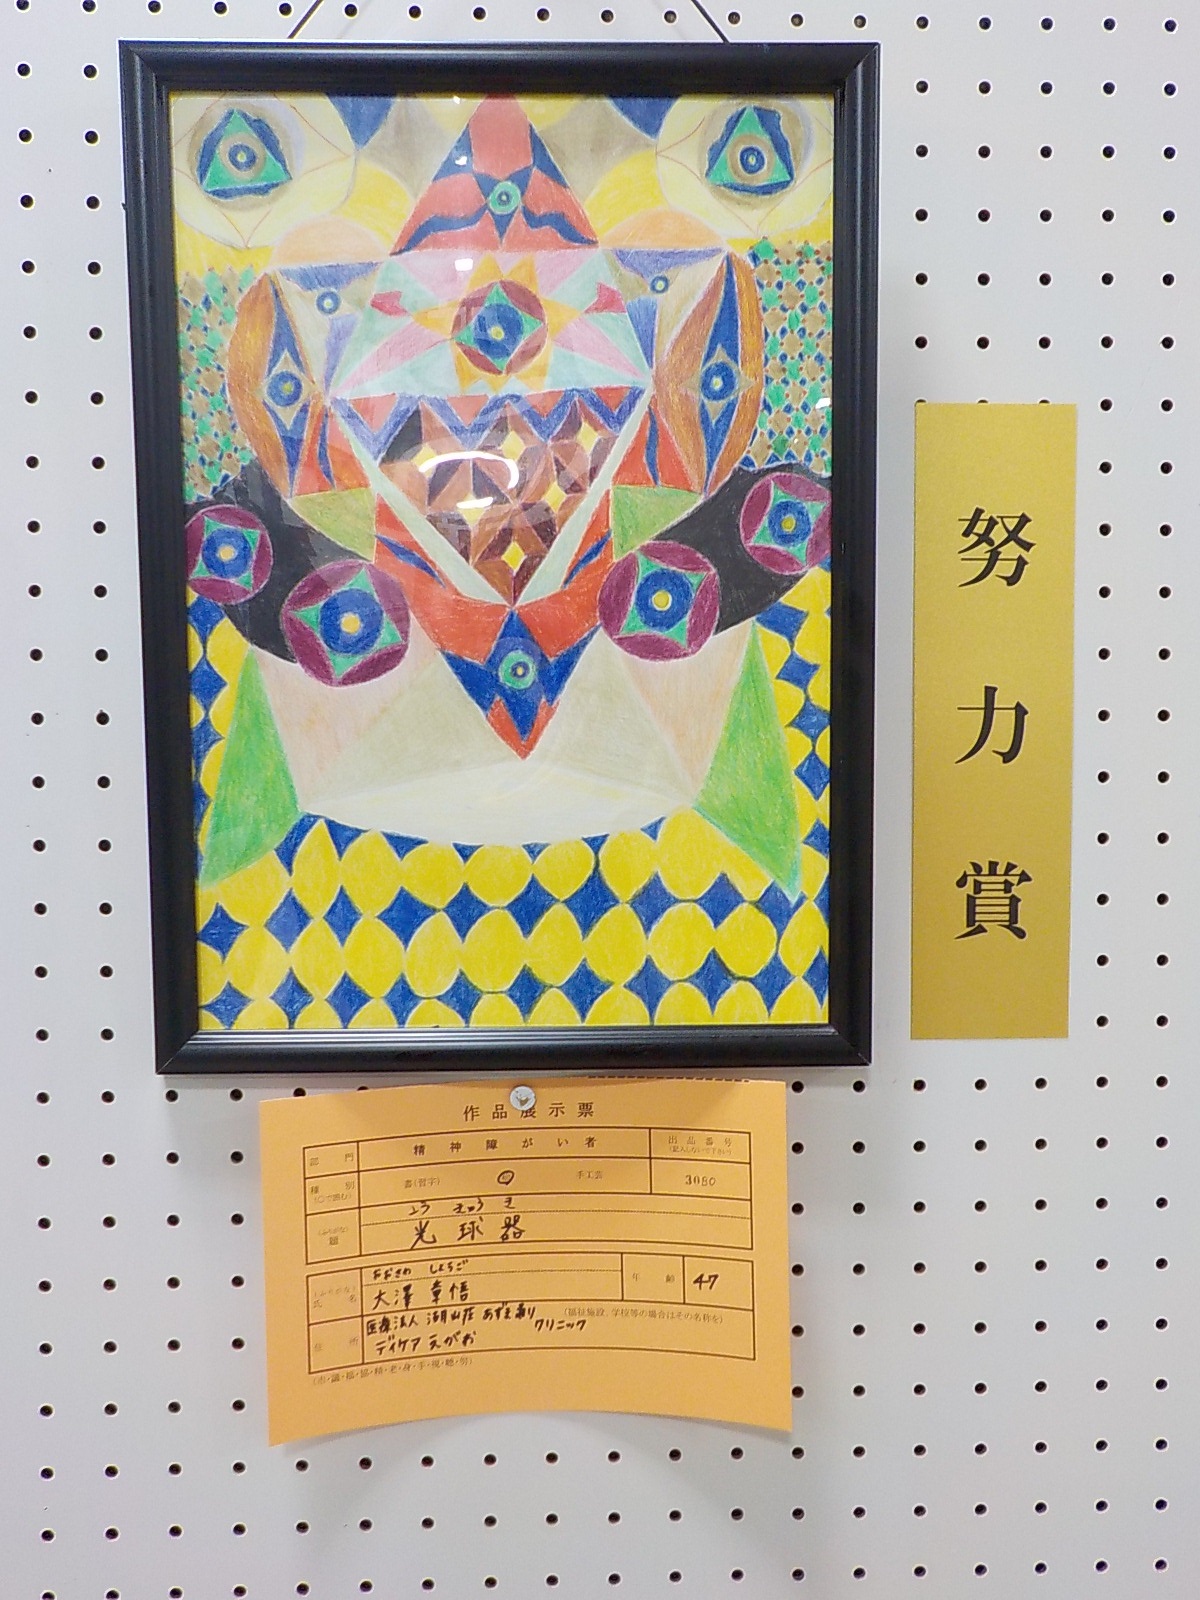 努力賞
作品展示票
部門 精神障がい者 出品番号
(記入しないで下さい)
種別 書(習字) 手工芸 3080
(○で囲む)
こうきゅうき
(ふりがな)
題 光球器
おおさわ しょうご
(ふりがな)
氏名 大澤章悟 年齢 47
住所 医療法人 湖山荘 あずま通り クリニック (福祉施設、学校等の場合はその名称を)
デイケア えがお